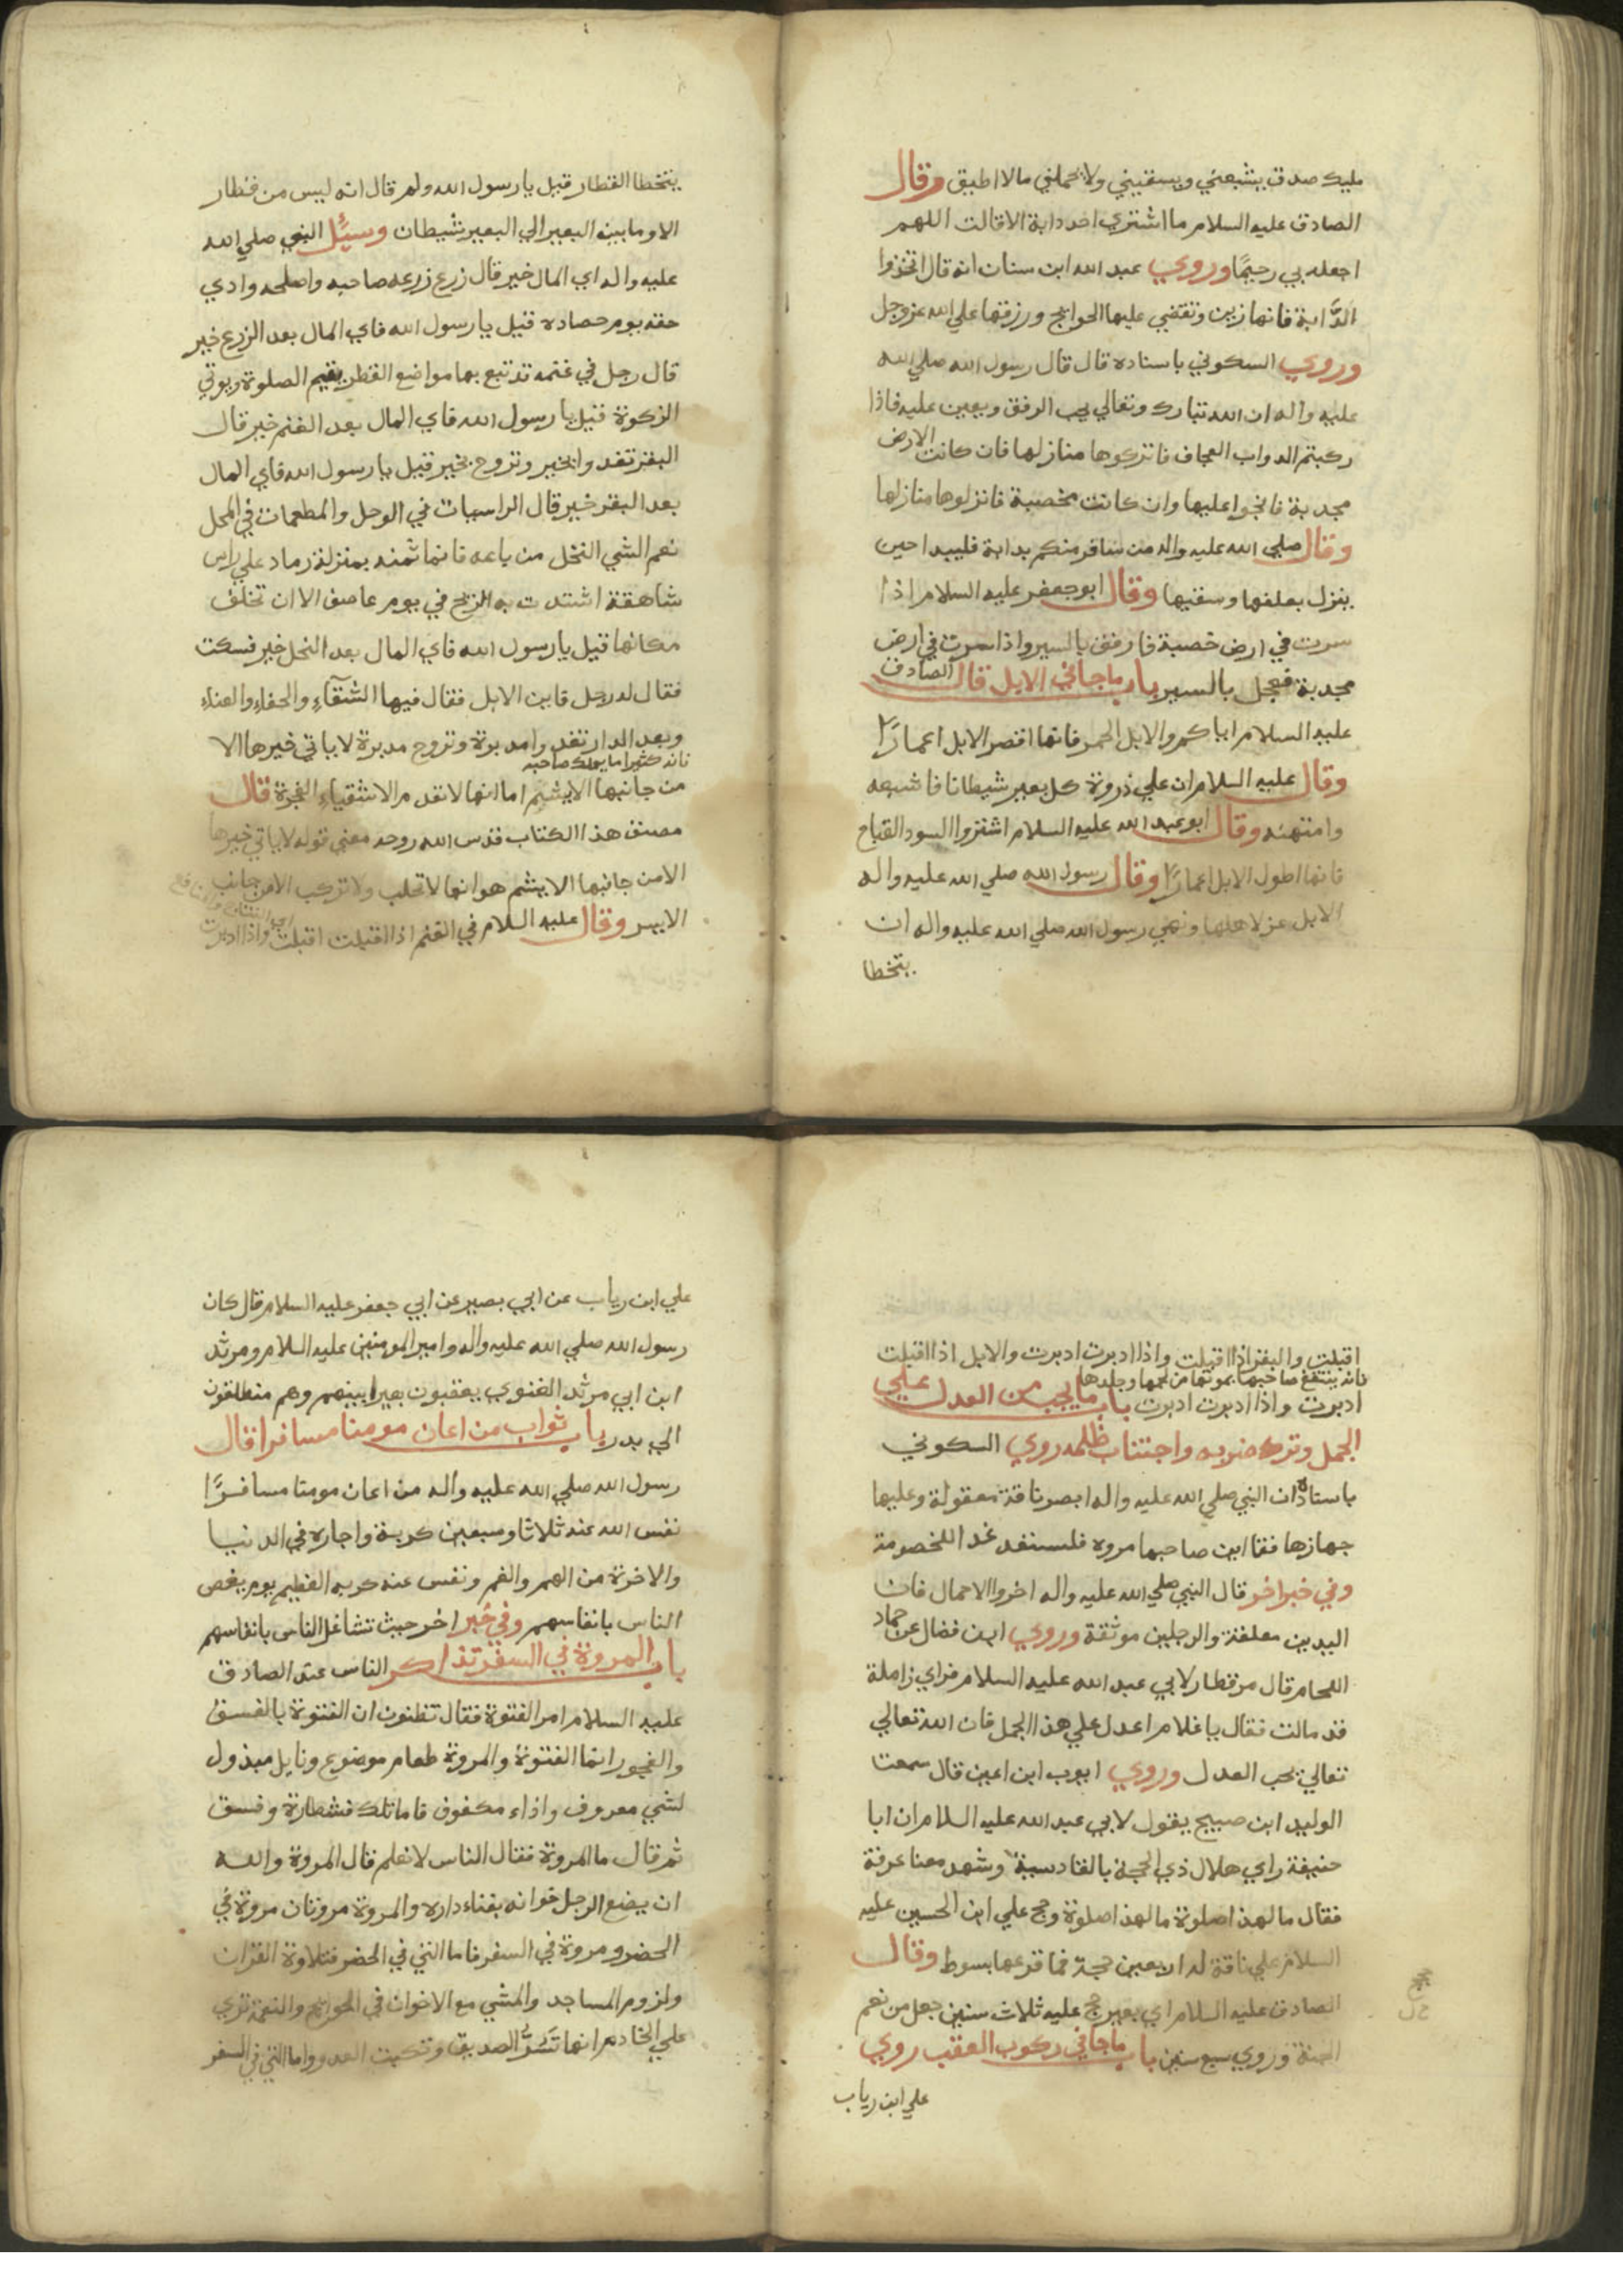 مليك صدق يشبعني ويسقيني ولا يحملني مالا اطيق وقال
الصادق عليه السلام ما اشتري احد دابة الا قالت اللهم
اجعله بي رحيمًا وروي عبد الله ابن سنان انه قال اتخذوا
الدَّابة فانها زين وتقضي عليها الحوائج ورزقها علي الله عزوجل
وروي السكوني باسناده قال قال رسول الله صلي الله
عليه واله ان الله تبارك وتعالي يحب الرفق ويعين عليه فاذا
ركبتم الدواب العجاف فانزلوها منازلها فان كانت الارض
مجدبة فانجوا عليها وان كانت مخصبة فانزلوها منازلها
وقال صلي الله عليه واله من سافر منكم بدابة فليبدا حين
ينزل بعلفها وسقيها وقال ابو جعفر عليه السلام اذا
سرت في ارض خصبة فارفق بالسير واذا سرت في ارض
مجدبة فعجل بالسير باب ما جا في الابل قال الصادق
عليه السلام اياكم والابل الحمر فانها اقصر الابل اعمارًا
وقال عليه السلام ان علي ذروة كل بعير شيطانا فاشبعه
وامتهنه وقال ابو عبد الله عليه السلام اشتروا السود القباح
فانها اطول الابل اعمارًا وقال رسول الله صلي الله عليه واله
الابل عز لاهلها ونهي رسول الله صلي الله عليه واله ان
يتخطا
يتخطا القطار قيل يا رسول الله ولم قال انه ليس من قطار
الا وما بين البعير الي البعير شيطان وسيُل النبي صلي الله
عليه واله اي المال خير قال زرع زرعه صاحبه واصلحه وادي
حقه يوم حصاده قيل يا رسول الله فاي المال بعد الزرع خير
قال رجل في غنمه قد تبع بها مواضع القطر يقيم الصلوة ويوتي
الزكوة قيل يا رسول الله فاي المال بعد الغنم خير قال
البقر تغدوا بخير وتروح بخير قيل يا رسول الله فاي المال
بعد البقر خير قال الراسيات في الوحل والمطعمات في المحل
نعم الشي النخل من باعه فانما ثمنه بمنزلة رماد علي راس
شاهقة اشتدت به الريح في يوم عاصف الا ان تخلف
مكانها قيل يا رسول الله فاي المال بعد النخل خير فسكت
فقال له رجل فاين الابل فقال فيها الشقآء والجفاء والعناء
وبعد الدار تغدوا مدبرة وتروح مدبرة لا ياتي خيرها الا
فانه كثيرا ما يهلك صاحبه
من جانبها الايشم اما انها لا تعدم الاشقياء الفجرة قال
مصنف هذا الكتاب قدس الله روحه معني قوله لا ياتي خيرها
الا من جانبها الايشم هو انها لا تحلب ولا تركب الا من جانب
الايسر وقال عليه السلام في الغنم اذا اقبلت اقبلت واذا ادبرت
اقبلت والبقر اذا اقبلت واذا ادبرت ادبرت والابل اذا اقبلت
فانه ينتفع صاحبها بموتها من لحمها وجلدها
ادبرت واذا ادبرت ادبرت باب ما يجب من العدل علي
الجمل وترك ضربه واجتناب ظلمه روي السكوني
باسناده ان النبي صلي الله عليه واله ابصر ناقة معقولة وعليها
جهازها فقا اين صاحبها مروه فلستعد غدا للخصومة
وفي خبر اخر قال النبي صلي الله عليه واله اخروا الاحمال فان
اليدين معلقة والرجلين موثقة وروي ابن فضال عن حماد
اللحام قال مر قطار لابي عبد الله عليه السلام فراي زاملة
قد مالت فقال يا غلام اعدل علي هذا الجمل فان الله تعالي
تعالي يحب العدل وروي ايوب ابن اعين قال سمعت
الوليد ابن صبيح يقول لابي عبد الله عليه السلام ان ابا
حنيفة راي هلال ذي الحجة بالقادسية وشهد معنا عرفة
فقال ما لهذا صلوة ما لهذا صلوة وحج علي ابن الحسين عليه
السلام علي ناقة له اربعين حجة فما قرعها بسوط وقال
الصادق عليه السلام اي بعير حج عليه ثلاث سنين جعل من نعم
الجنة وروي سبع سنين باب ما جا في ركوب العقب روي
علي ابن رياب
علي ابن رياب عن ابي بصير عن ابي جعفر عليه السلام قال كان
رسول الله صلي الله عليه واله وامير المومنين عليه السلام ومرثد
ابن ابي مرثد الغنوي يعقبون بعيرا بينهم وهم منطلقون
الي بدر باب ثواب من اعان مومنا مسافرا قال
رسول الله صلي الله عليه واله من اعان مومنا مسافرًا
نفس الله عنه ثلاثا وسبعين كربة واجاره في الدنيا
والاخرة من الهم والغم ونفس عنه كربه العظيم يوم يغص
الناس بانفاسهم وفي خبر اخر حيث تشاغل الناس بانفاسهم
باب المروة في السفر تذاكر الناس عند الصادق
عليه السلام امر الفتوة فقال تظنون ان الفتوة بالفسق
والفجور انما الفتوة والمروة طعام موضوع ونايل مبذول
لشي معروف واذاء مكفوف فاما تلك فشطارة وفسق
ثم قال ما المروة فقال الناس لا نعلم قال المروة والله
ان يضع الرجل خوانه بفناء داره والمروة مروتان مروة في
الحضر ومروة في السفر فاما التي في الحضر فتلاوة القران
ولزوم المساجد والمشي مع الاخوان في الحوايج والنعمة تري
علي الخادم انها تسرُّ الصديق وتكبت العدو واما التي في السفر